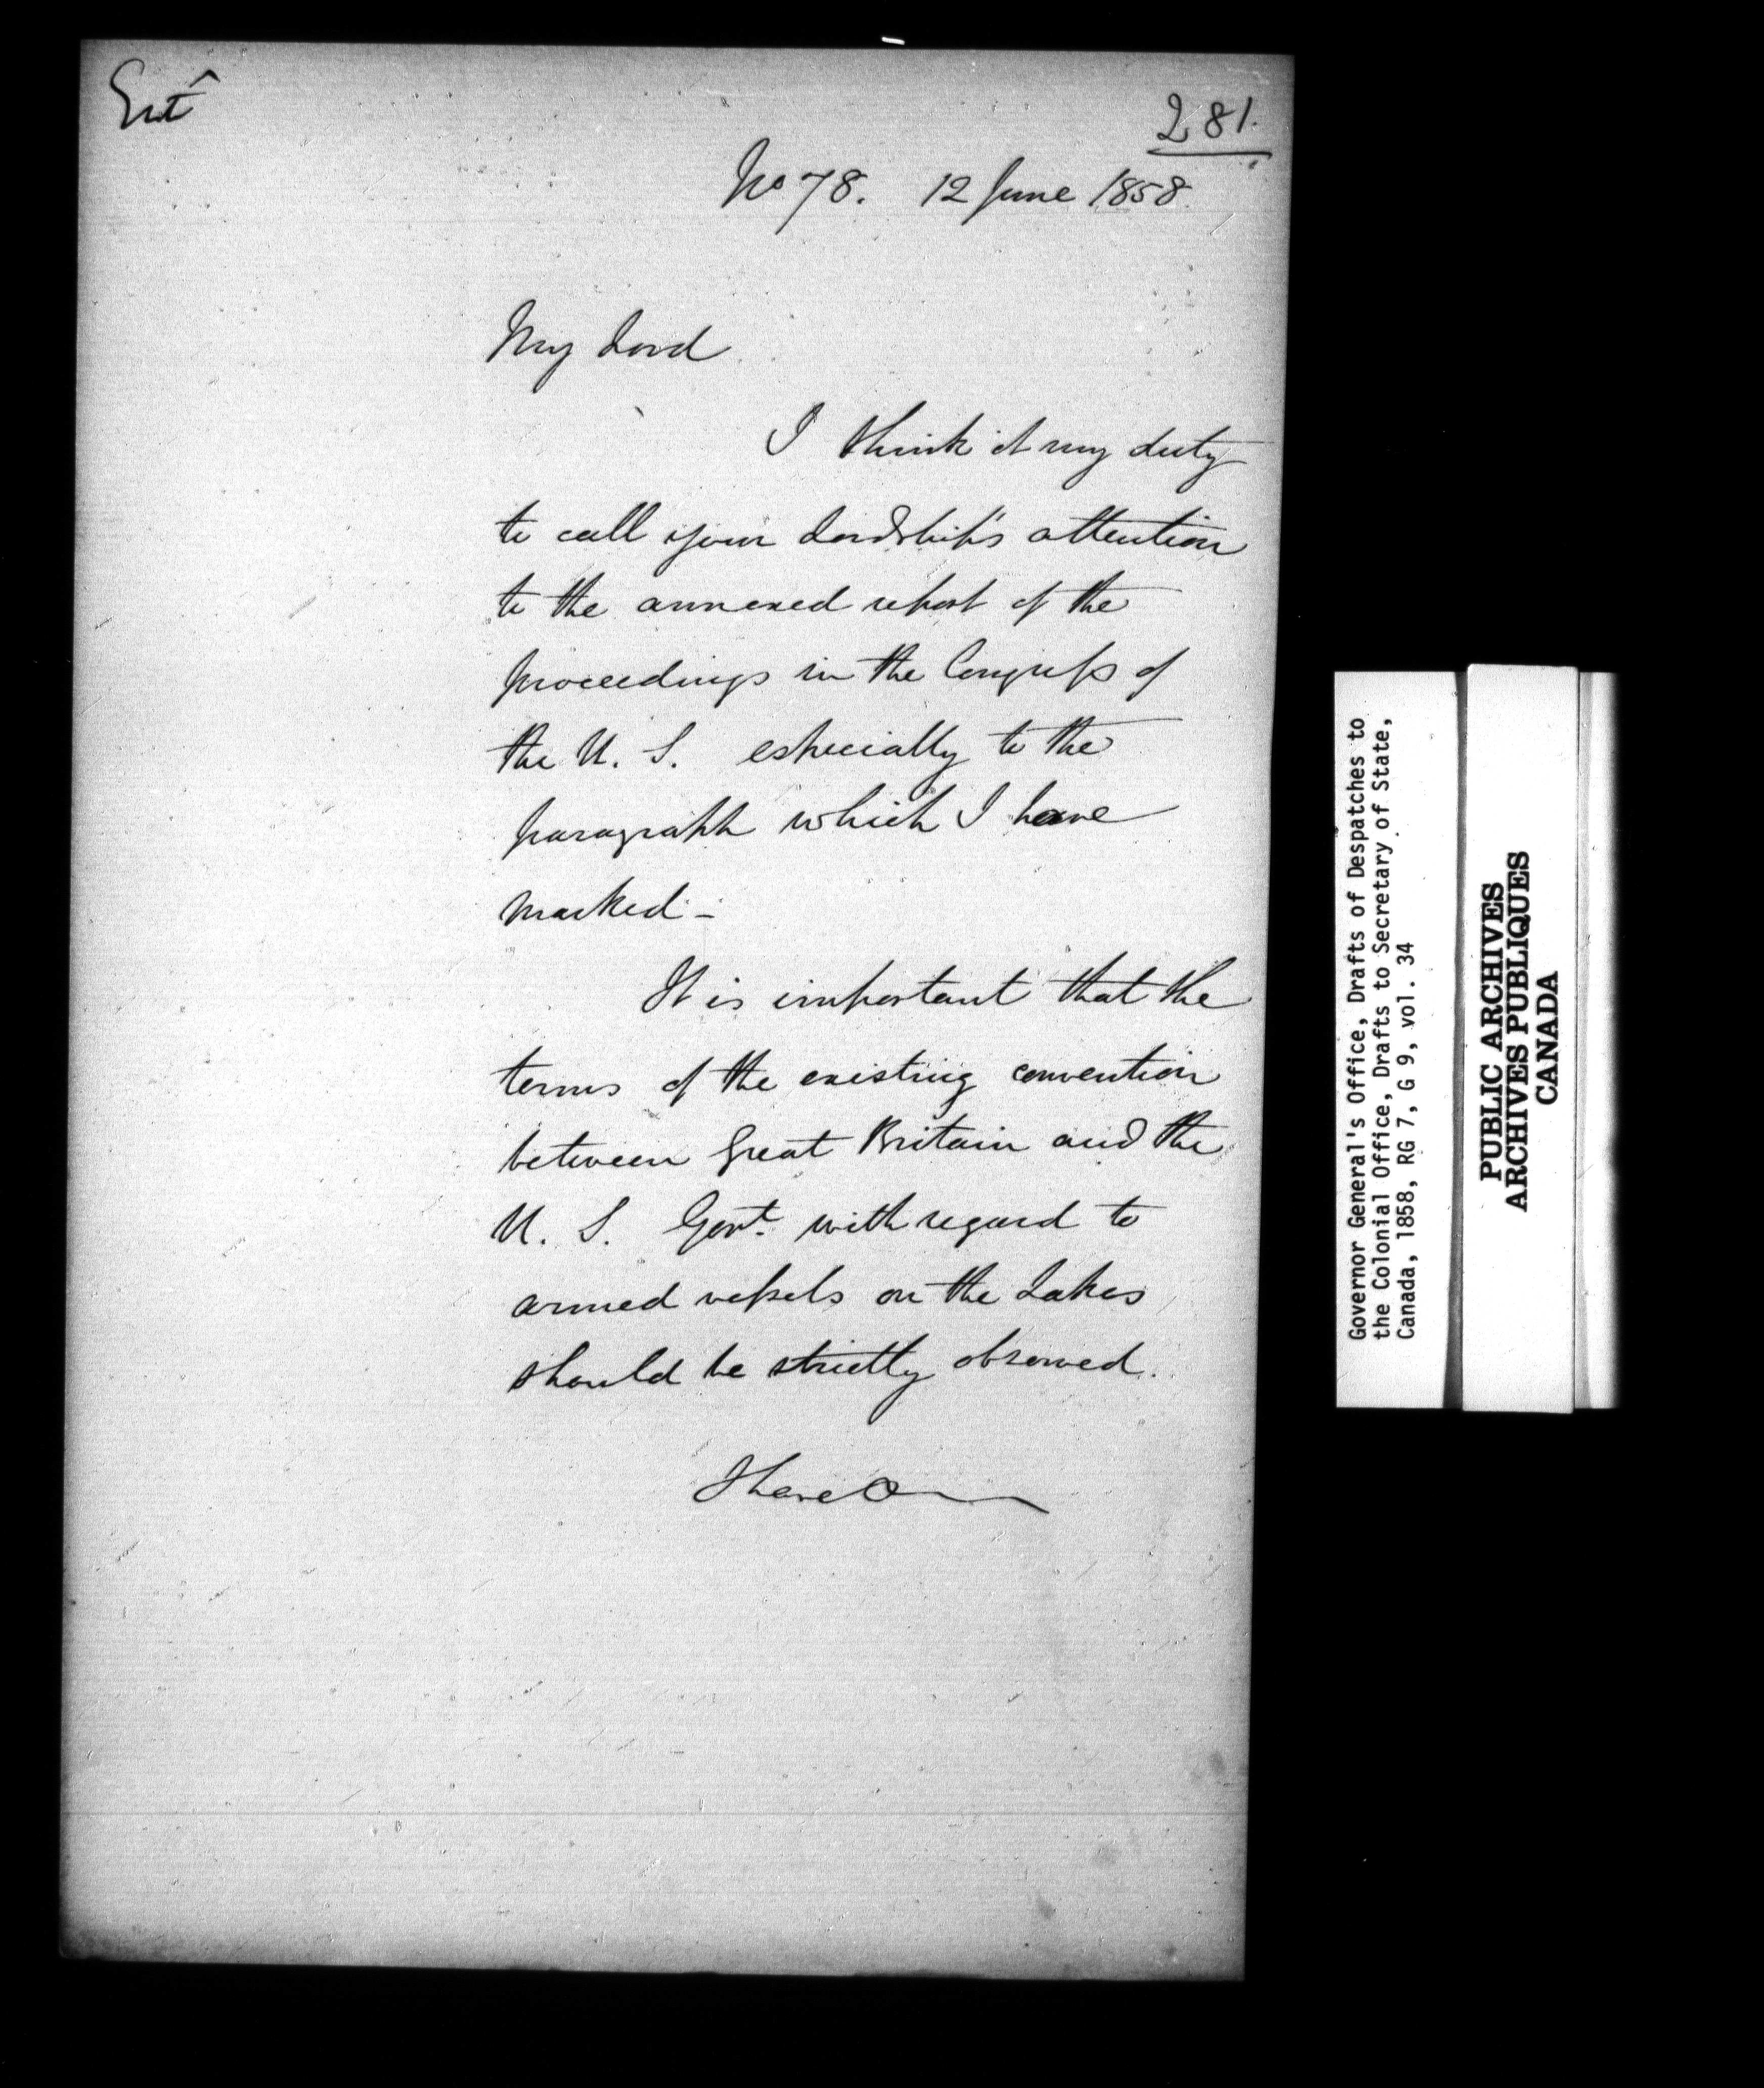 Entd
281.
No 78. 12 June 1858.
My Lord
I think it my duty
to call your Lordship's attention
to the annexed report of the
proceedings in the Congress of
the U. S. especially to the
paragraph which I have
marked -
It is important that the
terms of the existing convention
between Great Britain and the
U. S. Govt. with regard to
armed vessels on the Lakes
should be strictly observed.
I have
Governor General's Office, Drafts of Despatches to
the Colonial Office, Drafts to Secretary of State,
Canada, 1858, RG 7, G 9, vol. 34
PUBLIC ARCHIVES
ARCHIVES PUBLIQUES
CANADA